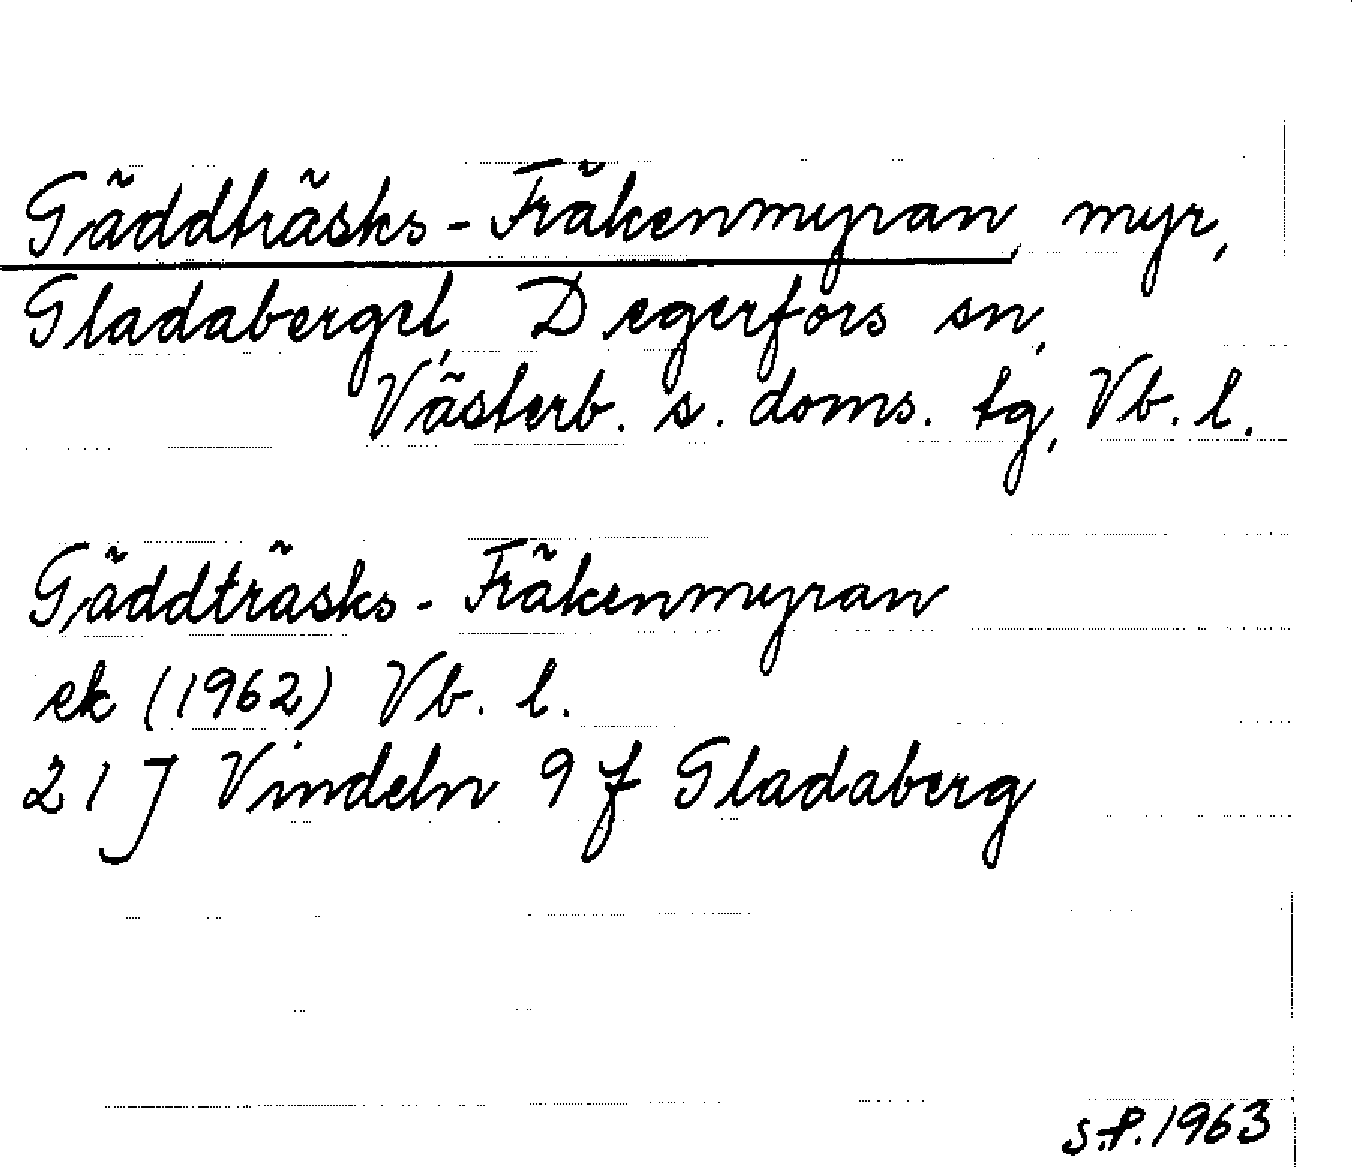 Gäddträsks-Fräkenmyran, myr,
Gladaberget, Degerfors sn,
Västerb. s. doms. tg, Vb. l.
Gäddträsks-Fräkenmyran
ek (1962) Vb. l.
21 J Vindeln 9 f Gladaberg
S.P. 1963